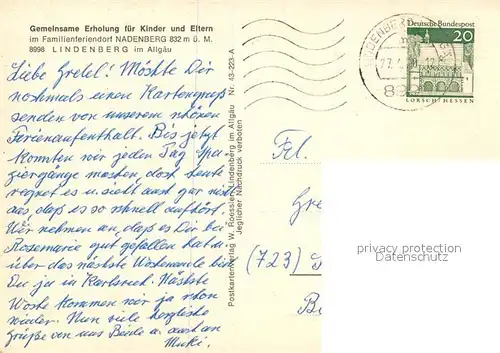 Gemeinsame Erholung für Kinder und Eltern
im Familienferiendorf NADENBERG 832 m ü. M.
8998 LINDENBERG im Allgäu
Liebe Gretel! Möchte Dir
nochmals einen Kartengruß
senden von unserem schönen
Ferienaufenthalt. Bis jetzt
konnten wir jeden Tag Spa-
ziergänge machen, doch heute
regnet es u. sieht auch gar nicht
aus, daß es so schnell aufhört.
Wir nehmen an, daß es Dir bei
Rosemarie gut gefallen hat u.
über das nächste Wochenende bist
Du ja in Karlsruh. Nächste
Woche kommen wir ja schon
wieder. Nun viele herzliche
Grüße von uns Beide u. auch an
Muki.
Postkartenverlag W. Roessler, Lindenberg im Allgäu Nr. 43-223-A
Jeglicher Nachdruck verboten
LINDENBERG
Deutsche Bundespost
20
LORSCH/HESSEN
Frl.
Gre
(723)
privacy protection
Datenschutz